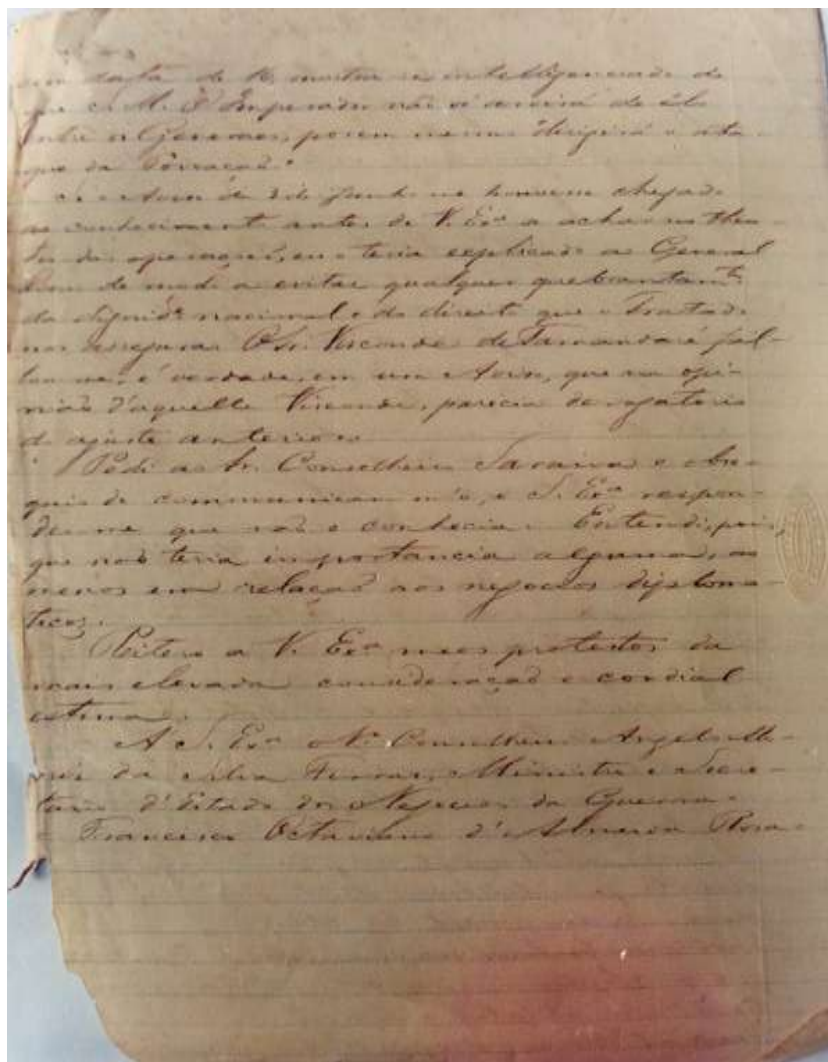 em data de 16, mostra-se intelligenciado de
que S. M. o Imperador não só servirá de élo
entre os Generaes, porem mesmo "dirigirá o ata-
que da
de Junho me houvesse chegado
ao conhecimento antes de V. Exª se achar no thea-
tro das operações, eu o teria explicado ao General
de modo a evitar qualquer quebrantamto
da dignide nacional e do direito que o Tratado
nos assegura. O Sr. Visconde de Tamandaré fal-
lou-me, é verdade, em um que na opi-
nião d'aquelle Visconde, parecia derogatorio
do ajuste anterior.
Pedi ao Sr. Conselheiro Saraiva o obse-
quio de communicar-m'o, e S. Exª respon-
deu-me que não o conhecia. Entendi, pois,
que não teria importancia alguma, ao
menos em relação aos negocios diploma-
ticos.
Reitero a V. Exª meus protestos da
mais elevada consideração e cordial
estima.
A S. Exª o Sr. Conselheiro Angelo Mo-
niz da Silva Ferraz, Ministro e Secre-
tario d'Estado dos Negocios da Guerra.
Francisco Octaviano d'Almeida Rosa.